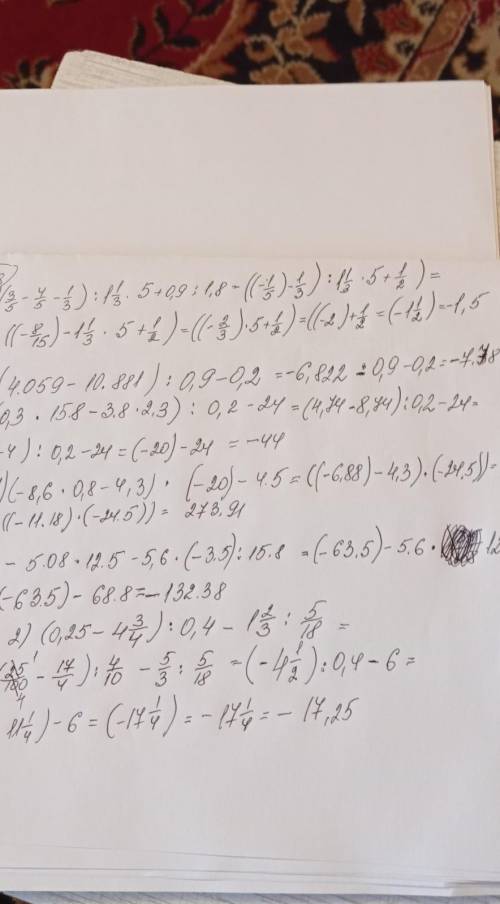 (3/5 - 4/5 - 1/3) : 1 1/3 · 5 + 0,9 : 1,8 = ((-1/5) - 1/3) : 1 1/3 · 5 + 1/2) =
((-8/15) - 1 1/3 · 5 + 1/2) = ((-2/3) · 5 + 1/2) = ((-2) + 1/2 = (-1 1/2) = -1,5
(4.059 - 10.881) : 0,9 - 0,2 = -6,822 : 0,9 - 0,2 =
0,3 · 15.8 - 3.8 · 2,3) : 0,2 - 24 = (4,74 - 8,74) : 0,2 - 24 =
-4) : 0,2 - 24 = (-20) - 24 = -44
)(-8,6 · 0,8 - 4,3) · (-20) - 4.5 = ((-6,88) - 4,3) · (-24,5)) =
((-11.18) · (-24.5)) = 273,91
- 5.08 · 12.5 - 5,6 · (-3.5) : 15.8 = (-63,5) - 5.6 ·
(-63.5) - 68.8 = -132.38
2) (0,25 - 4 3/4) : 0,4 - 1 2/3 : 5/18 =
(25/100 - 17/4) : 4/10 - 5/3 : 5/18 = (-4 1/2) : 0,4 - 6 =
11 1/4) - 6 = (-17 1/4) = -17 1/4 = -17,25